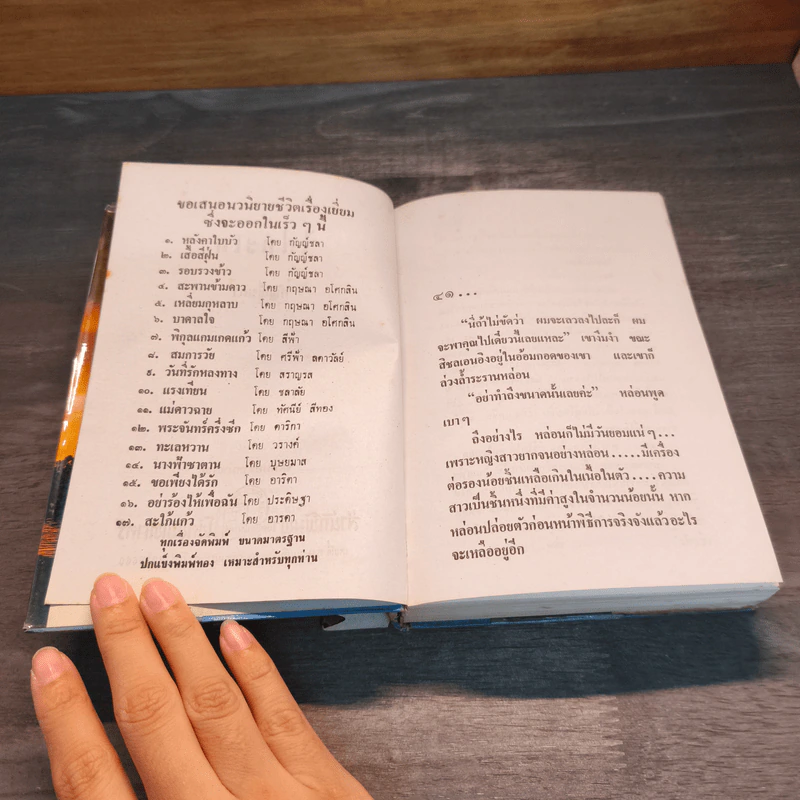 ขอเสนอนวนิยายชีวิตเรื่องเยี่ยม
ซึ่งจะออกในเร็ว ๆ นี้
๑. หลังคาใบบัว โดย กัญญ์ชลา
๒. เสื้อสีฝุ่น โดย กัญญ์ชลา
๓. รอบรวงข้าว โดย กัญญ์ชลา
๔. สะพานข้ามดาว โดย กฤษณา อโศกสิน
๕. เหลี่ยมกุหลาบ โดย กฤษณา อโศกสิน
๖. บาดาลใจ โดย กฤษณา อโศกสิน
๗. พิกุลแกมเกดแก้ว โดย สีฟ้า
๘. สมการวัย โดย ศรีฟ้า ลดาวัลย์
๙. วันที่รักหลงทาง โดย สราญรส
๑๐. แรงเทียน โดย ชลาลัย
๑๑. แม่ดาวฉาย โดย ทัศนีย์ สีทอง
๑๒. พระจันทร์ครึ่งซีก โดย ดาริกา
๑๓. ทะเลหวาน โดย วรางค์
๑๔. นางฟ้าซาตาน โดย บุษยมาส
๑๕. ขอเพียงได้รัก โดย อาริตา
๑๖. อย่าร้องไห้เพื่อฉัน โดย ประดิษฐา
๑๗. สะใภ้แก้ว โดย อารดา
ทุกเรื่องจัดพิมพ์ ขนาดมาตรฐาน
ปกแข็งพิมพ์ทอง เหมาะสำหรับทุกท่าน
๔๑...
“นี่ถ้าไม่ขัดว่า ผมจะเลวลงไปละก็ ผม
จะพาคุณไปเดี๋ยวนี้เลยแหละ” เขางึมงำ ขณะ
สิชลเอนอิงอยู่ในอ้อมกอดของเขา และเขาก็
ล่วงล้ำระรานหล่อน
“อย่าทำถึงขนาดนั้นเลยค่ะ” หล่อนพูด
เบาๆ
ถึงอย่างไร หล่อนก็ไม่มีวันยอมแน่ๆ...
เพราะหญิงสาวยากจนอย่างหล่อน.....มีเครื่อง
ต่อรองน้อยชิ้นเหลือเกินในเนื้อในตัว....ความ
สาวเป็นชิ้นหนึ่งที่มีค่าสูงในจำนวนน้อยนั้น หาก
หล่อนปล่อยตัวก่อนหน้าพิธีการจริงจังแล้วอะไร
จะเหลืออยู่อีก